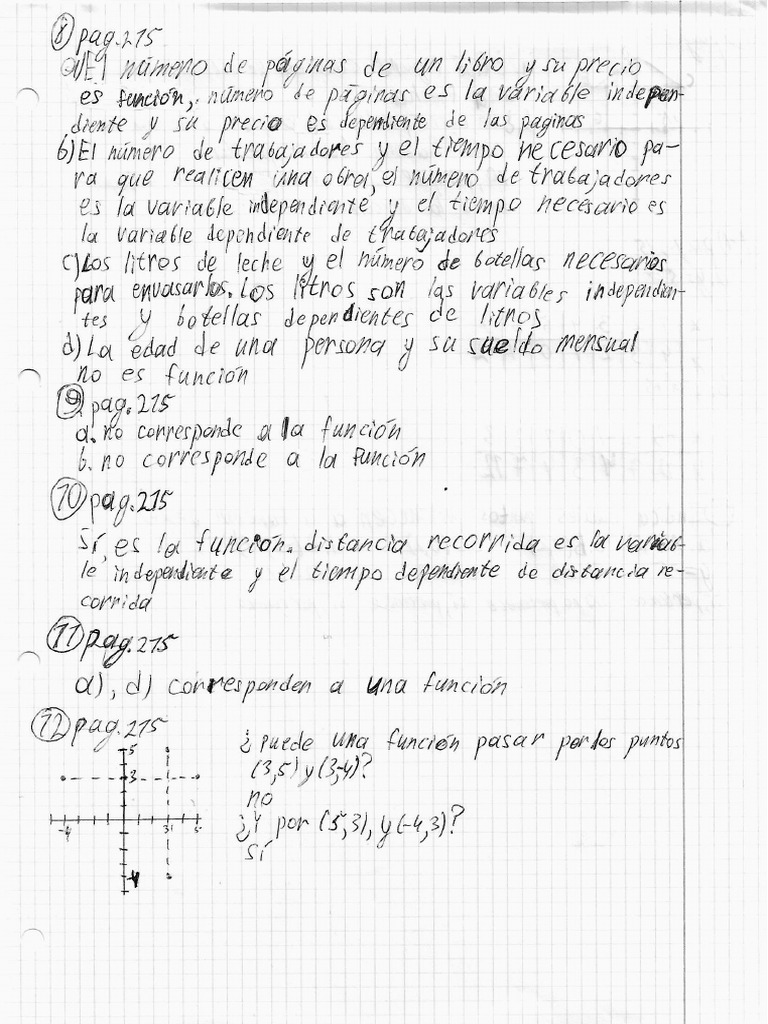 8 pag.215
a) El número de páginas de un libro y su precio
es función, número de páginas es la variable indepen-
diente y su precio es dependiente de las paginas
b) El número de trabajadores y el tiempo necesario pa-
ra que realicen una obra, el número de trabajadores
es la variable independiente y el tiempo necesario es
la variable dependiente de trabajadores
c) Los litros de leche y el número de botellas necesarias
para envasarlos. Los litros son las variables independien-
tes y botellas dependientes de litros
d) La edad de una persona y su sueldo mensual
no es función
9 pag.215
a. no corresponde a la función
b. no corresponde a la función
10 pag.215
Sí, es la función. distancia recorrida es la variab-
le independiente y el tiempo dependiente de distancia re-
corrida
11 pag.215
a), d) corresponden a una función
12 pag.215
5
3
-4 3 5
-4
¿Puede una función pasar por los puntos
(3,5) y (3,-4)?
no
¿Y por (5,3), y (-4,3)?
Sí